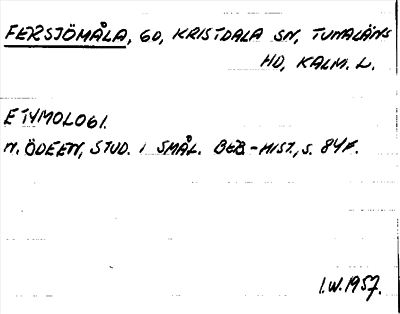 FERSJÖMÅLA, GD, KRISTDALA SN, TUNALÄNS
HD, KALM. L.
ETYMOLOGI.
N. ÖDEEN, STUD. I SMÅL. BEB-HIST., S. 84F.
I.W.1957.